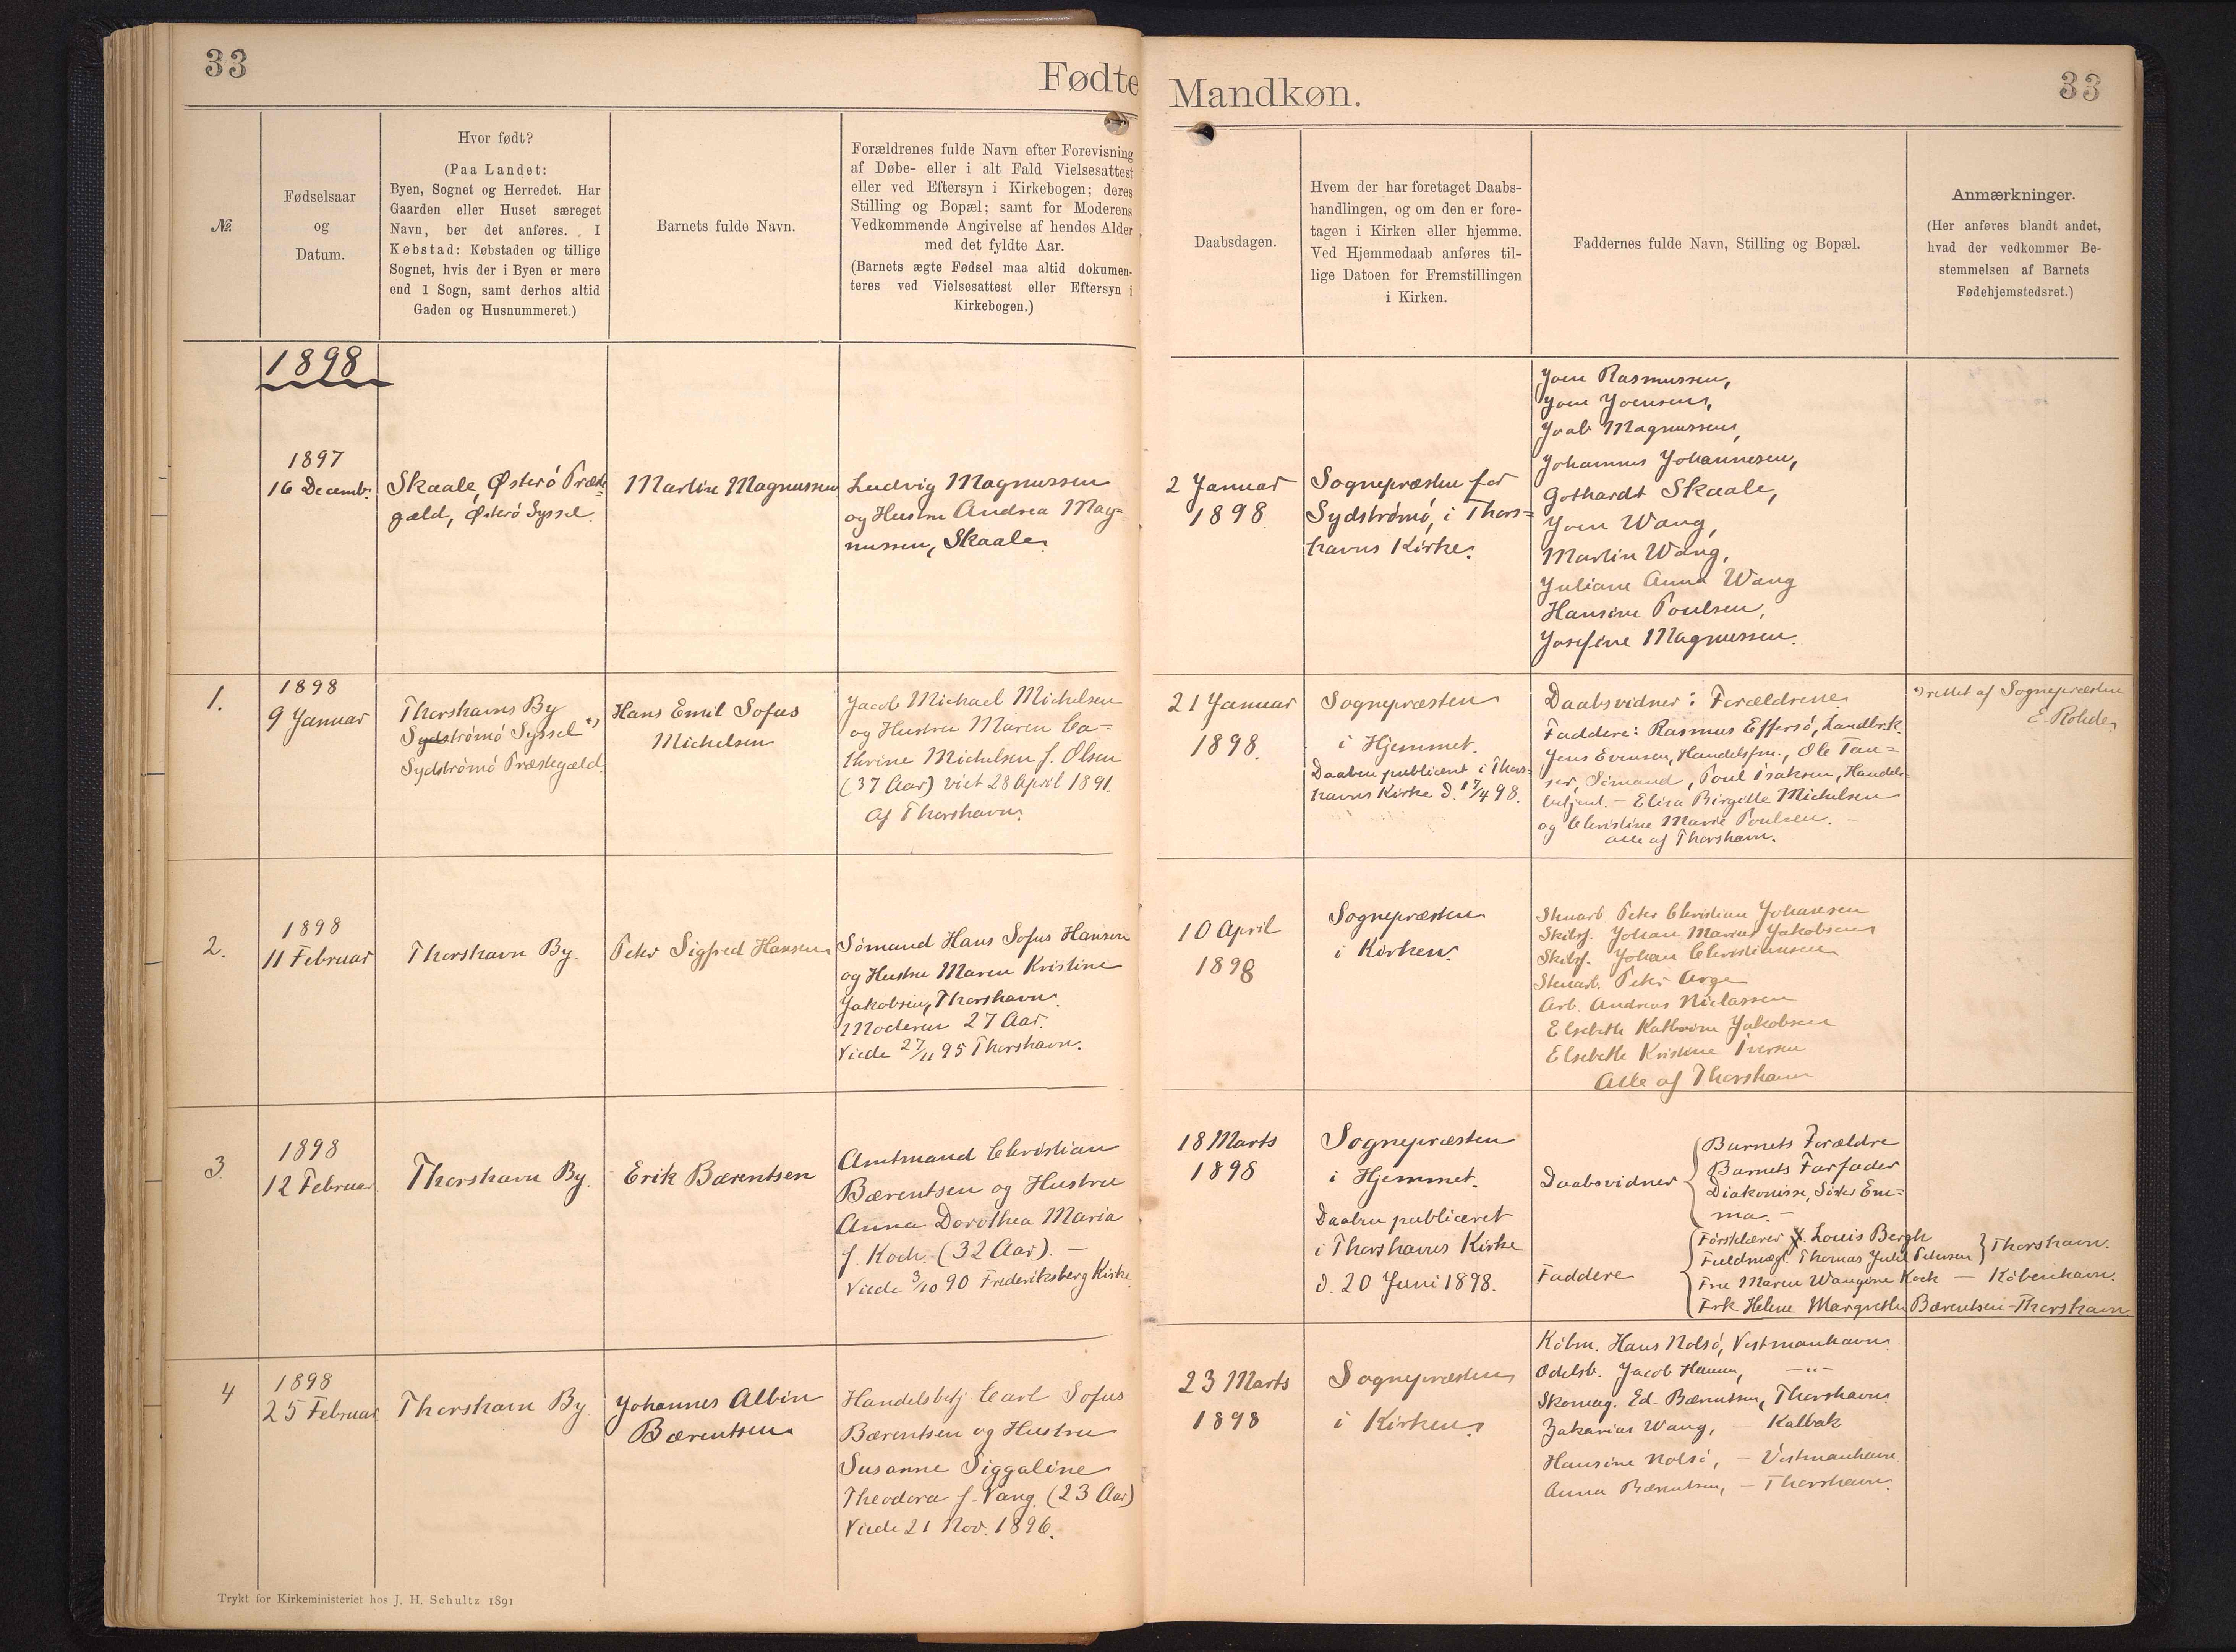 33
Fødte
Mandkøn.
33
№.
Fødselsaar
og
Datum.
Hvor født?
(Paa Landet:
Byen, Sognet og Herredet. Har
Gaarden eller Huset særeget
Navn, bør det anføres. I
Købstad: Købstaden og tillige
Sognet, hvis der i Byen er mere
end 1 Sogn, samt derhos altid
Gaden og Husnummeret.)
Barnets fulde Navn.
Forældrenes fulde Navn efter Forevisning
af Døbe- eller i alt Fald Vielsesattest
eller ved Eftersyn i Kirkebogen; deres
Stilling og Bopæl; samt for Moderens
Vedkommende Angivelse af hendes Alder
med det fyldte Aar.
(Barnets ægte Fødsel maa altid dokumen-
teres ved Vielsesattest eller Eftersyn i
Kirkebogen.)
Daabsdagen.
Hvem der har foretaget Daabs-
handlingen, og om den er fore-
tagen i Kirken eller hjemme.
Ved Hjemmedaab anføres til-
lige Datoen for Fremstillingen
i Kirken.
Faddernes fulde Navn, Stilling og Bopæl.
Anmærkninger.
(Her anføres blandt andet,
hvad der vedkommer Be-
stemmelsen af Barnets
Fødehjemstedsret.)
1898
1897
16 Decemb.
Skaale, Østerö Præste=
gæld, Østerö Syssel.
Martin Magnussen
Ludvig Magnussen
og Hustru Andrea Mag=
nussen, Skaale.
2 Januar
1898.
Sognepræsten for
Sydströmö, i Thors=
havns Kirke.
Joen Rasmussen,
Joen Joensen,
Joab Magnussen,
Johannes Johannesen,
Gothardt Skaale,
Joen Wang,
Martin Wang,
Juliane Anna Wang
Hansine Poulsen,
Josefine Magnussen.
1.
1898
9 Januar
Thorshavns By
Sydströmö Syssel *)
Sydströmö Præstegæld.
Hans Emil Sofus
Michelsen
Jacob Michael Michelsen
og Hustru Maren Ca=
thrine Michelsen f. Olsen
(37 Aar) viet 28 April 1891.
Af Thorshavn.
21 Januar
1898.
Sognepræsten
i Hjemmet.
Daaben publiceret i Thors=
havns Kirke d. 17/4 98.
Daabsvidner: Forældrene
Faddere: Rasmus Effersö, Landbr.k.
Jens Evensen, Handelsfm., Ole Tau=
sen, Sömand, Poul Isaksen, Handels
betjent. – Elisa Birgitte Michelsen
og Christine Marie Poulsen. –
alle af Thorshavn.
*) rettet af Sognepræsten
E. Rohde
2.
1898
11 Februar
Thorshavn By.
Peter Sigfred Hansen
Sömand Hans Sofus Hansen
og Hustru Maren Kristine
Jakobsen, Thorshavn.
Moderen 27 Aar.
Viede 27/11 95 Thorshavn.
10 April
1898
Sognepræsten
i Kirken.
Stenarb. Peter Christian Johansen
Skibsf. Johan Marius Jakobsen
Skibsf. Johan Christiansen
Stenarb. Peter Arge
Arb. Andreas Niclassen
Elsebeth Kathrine Jakobsen
Elsebeth Kristine Iversen
Alle af Thorshavn
3.
1898
12 Februar.
Thorshavn By.
Erik Bærentsen
Amtmand Christian
Bærentsen og Hustru
Anna Dorothea Maria
f. Koch. (32 Aar). –
Viede 3/10 90 Frederiksberg Kirke.
18 Marts
1898
Sognepræsten
i Hjemmet.
Daaben publiceret
i Thorshavns Kirke
d. 20 Juni 1898.
Daabsvidner
Barnets Forældre
Barnets Farfader
Diakonisse, Söster Em=
ma. –
Faddere
Förstelærer Louis Bergh
Fuldmægt. Thomas Juhl Petersen } Thorshavn.
Fru Maren Wangine Koch — Köbenhavn.
Frk. Helene Margrethe Bærentsen – Thorshavn.
4
1898
25 Februar.
Thorshavn By.
Johannes Albin
Bærentsen
Handelsbetj. Carl Sofus
Bærentsen og Hustru
Susanne Siggaline
Theodora f. Vang. (23 Aar)
Viede 21 Nov. 1896.
23 Marts
1898
Sognepræsten
i Kirken.
Köbm. Hans Nolsö, Vestmanhavn.
Odelsb. Jacob Hansen, –"–
Skomag. Ed. Bærentsen, Thorshavn.
Zakarias Wang, – Kalbak
Hansine Nolsö, – Vestmanhavn.
Anna Bærentsen, – Thorshavn.
Trykt for Kirkeministeriet hos J. H. Schultz 1891